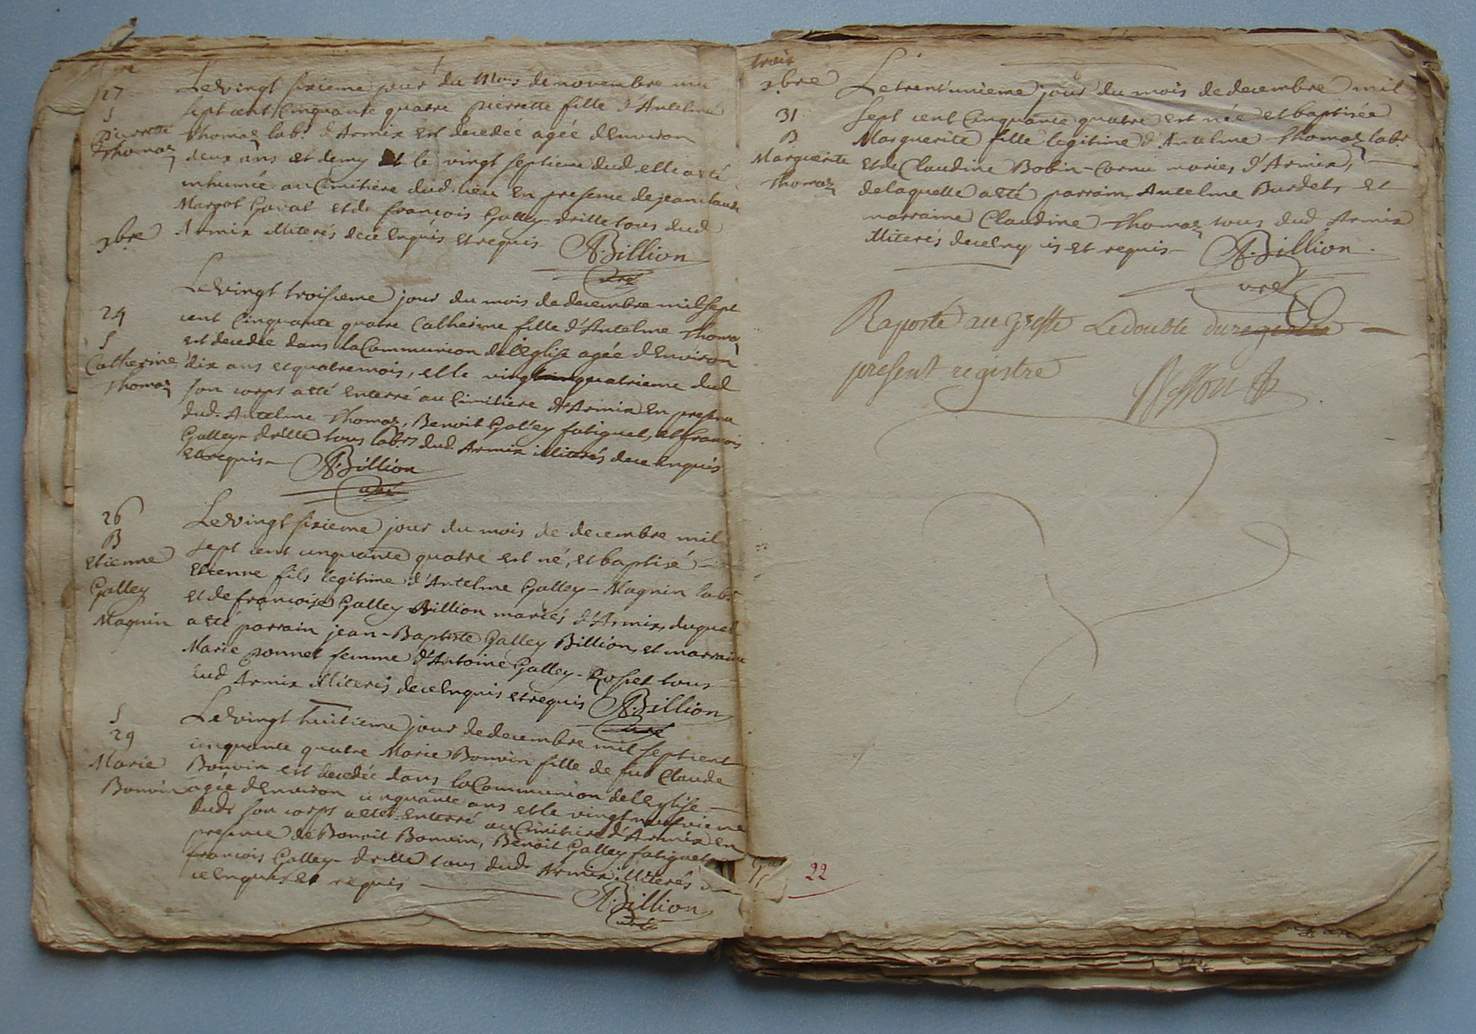 27
S
pierrette
thomaz
Le vingt sixieme jour du mois de novembre mil
sept cent Cinquante quatre pierrette fille d'Antelme
thomaz labr d'Armix est decedée agée d'Environ
deux ans et demy et le vingt septieme dud. elle a eté
inhumée au Cimitière dud. lieu En presence de jean claude
Margot Gavat et de françois Galley-drille tous dud.
Armix illiterés de ce Enquis et requis
ABillion
curé
xbre
24
S
Catherine
thomaz
Le vingt troisieme jour du mois de decembre mil sept
cent Cinquante quatre Catherine fille d'Antelme thomaz
est decedée dans la Communion de l'eglise agée d'Environ
dix ans et quatre mois, et le vingt quatrieme dud.
son corps a eté enterré au Cimitière d'Armix En presence
dud. Antelme thomaz, Benoit Galley fatiguet, et françois
Galley-drille tous labrs dud. Armix illiterés de ce Enquis
et requis
ABillion
curé
26
B
etienne
Galley
Magnin
Le vingt sixieme jour du mois de decembre mil
sept cent cinquante quatre est né, et baptisé
etienne fils legitime d'Antelme Galley-Magnin labr
et de françoise Galley Billion mariés d'Armix, duquel
a eté parrain jean-Baptiste Galley Billion, et marraine
Marie ponnet femme d'Antoine Galley-Roset tous
dud. Armix illiterés de ce Enquis et requis
ABillion
curé
S
29
Marie
Bonvin
Le vingt huitieme jour de decembre mil sept cent
cinquante quatre Marie Bonvin fille de fut Claude
Bonvin est decedée dans la Communion de l'eglise
agée d'Environ cinquante ans et le vingt neufvieme
dud. son corps a eté Enterré au Cimitière d'Armix En
presence de Benoit Bonvin, Benoit Galley fatiguet
françois Galley-drille tous dud. Armix illiterés de
ce Enquis et requis
ABillion
curé
trois
xbre
31
B
Marguerite
thomaz
Le trent'unieme jour du mois de decembre mil
sept cent Cinquante quatre est née et baptisée
Marguerite fille legitime d'Antelme thomaz labr
et de Claudine Bobin-Cornu mariés d'Armix,
de laquelle a eté parrain Antelme Burdet et
marraine Claudine thomaz tous dud. Armix
illiterés de ce Enquis et requis
ABillion
curé
Raporté au Greffe Le double du registre
present registre
22